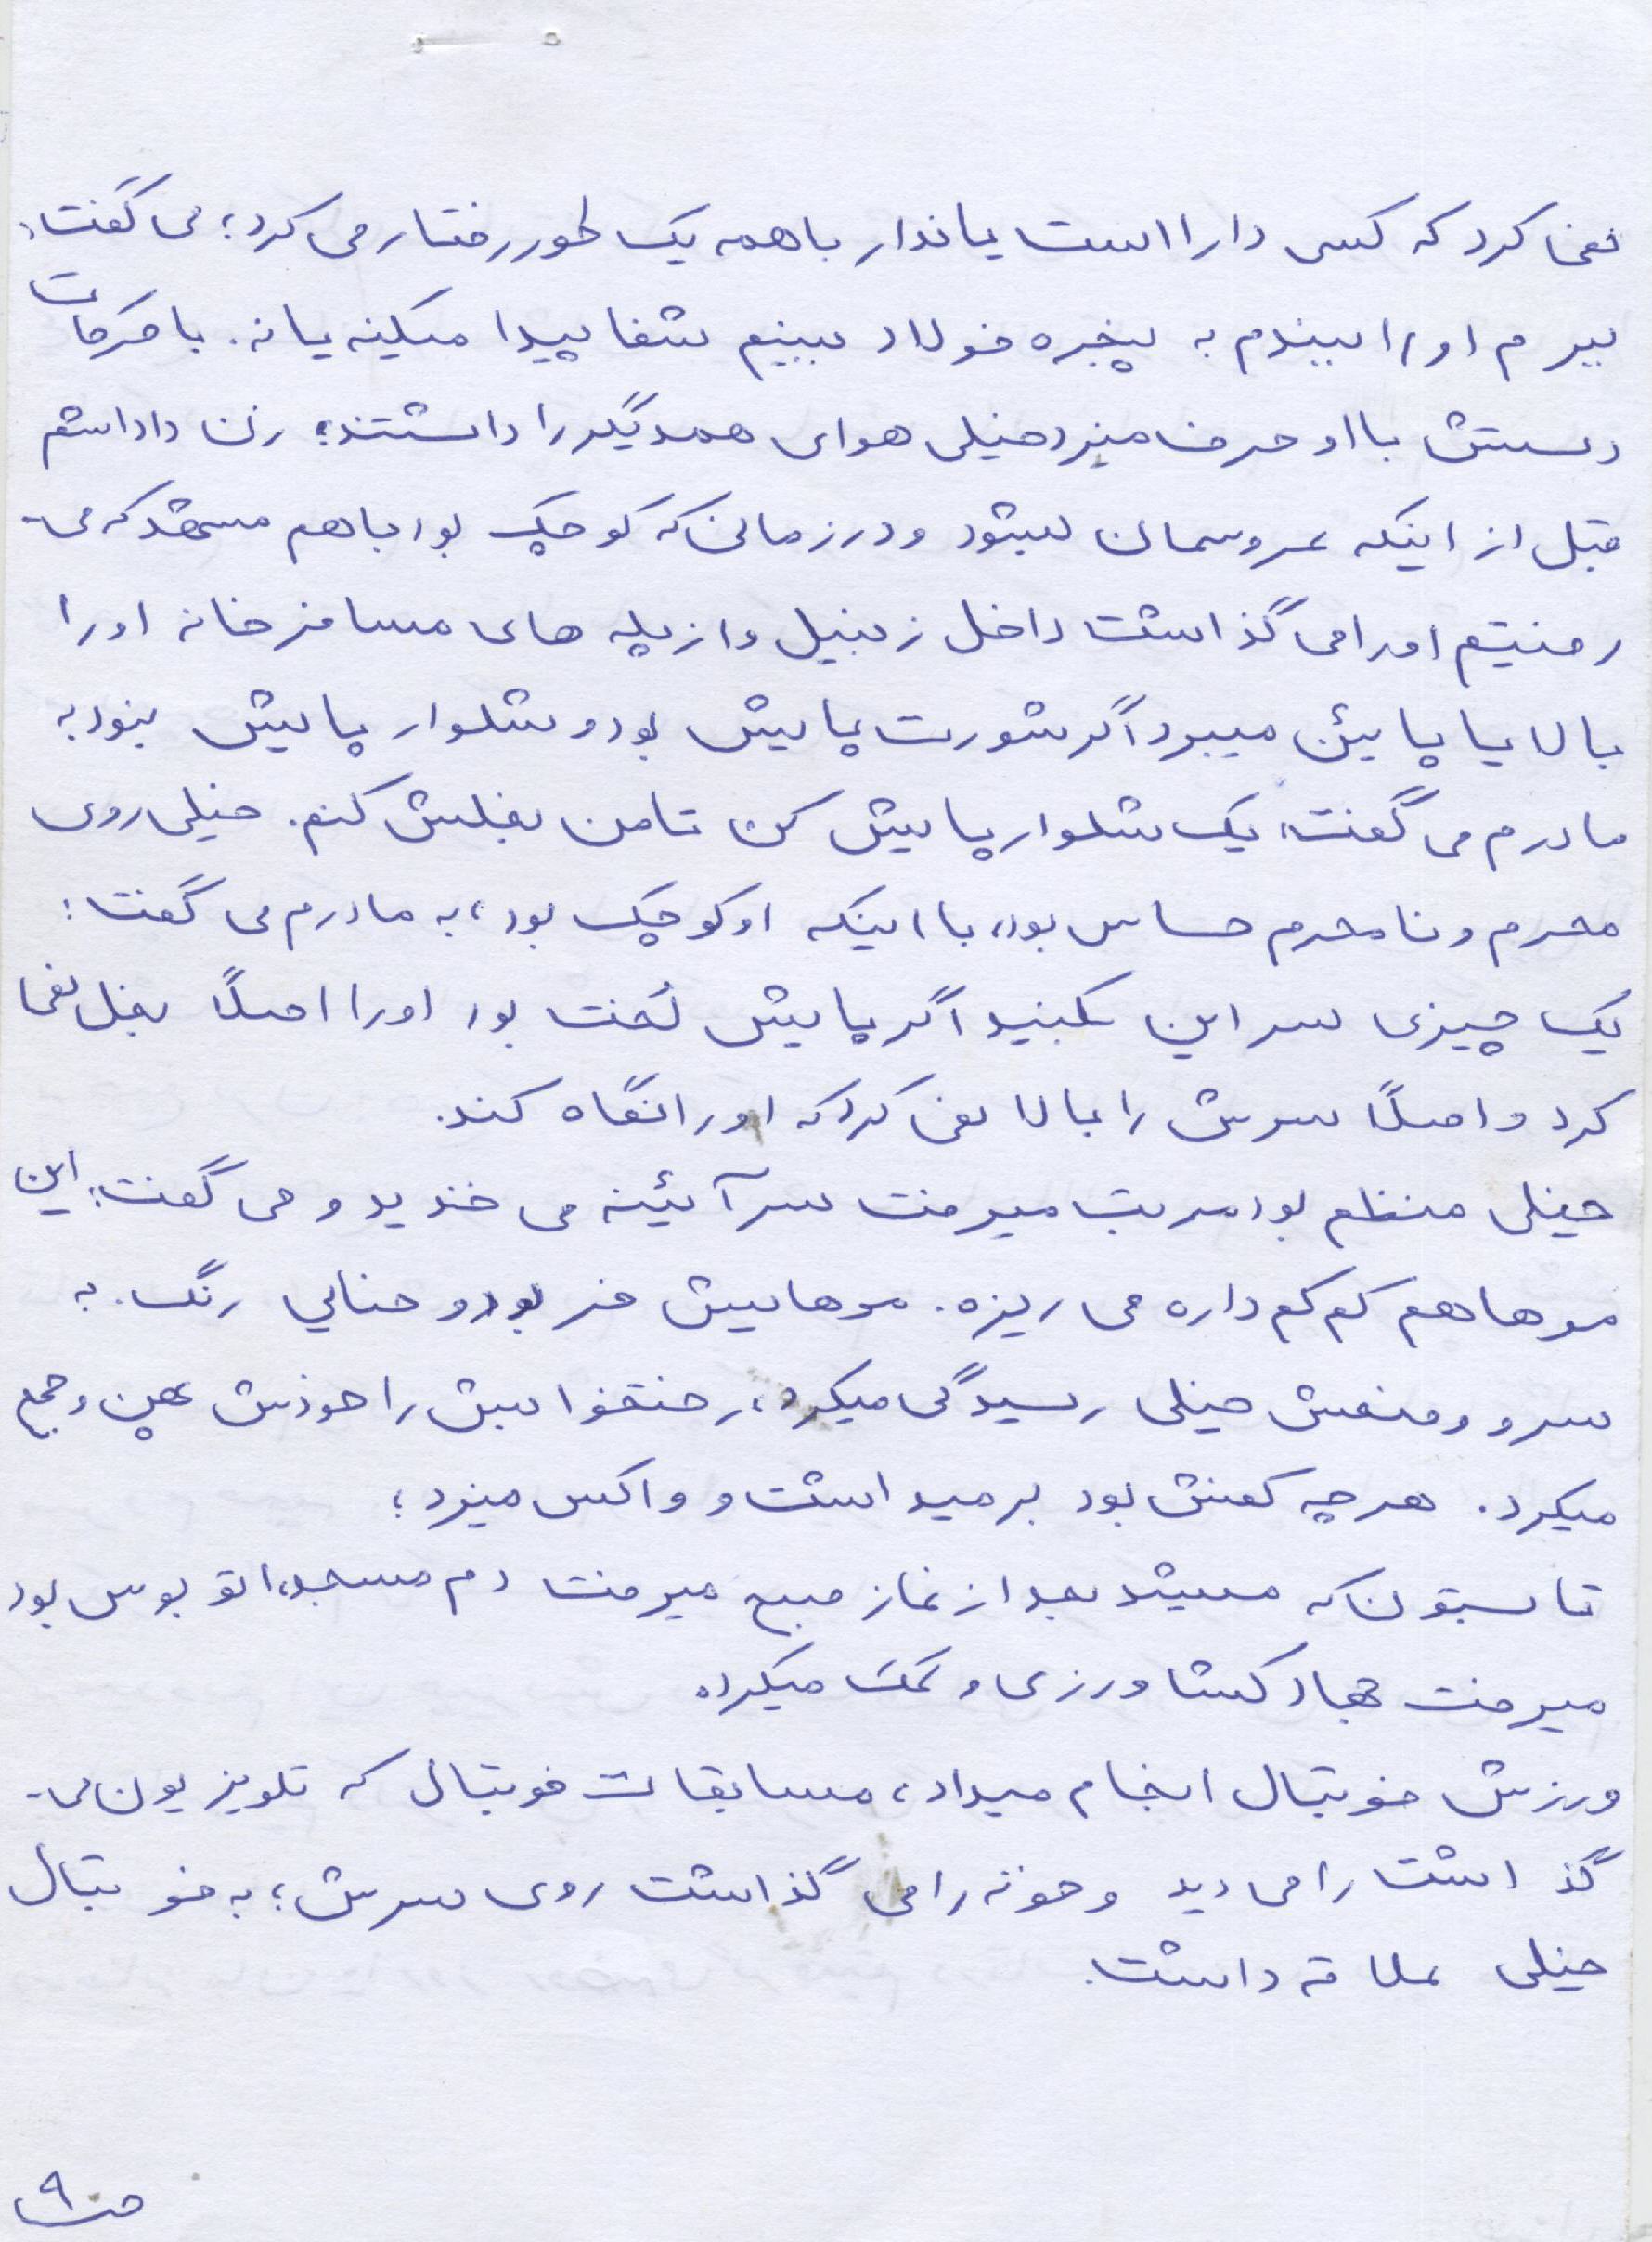 نمی کرد که کسی دارا است یا ندار با همه یک طور رفتار می کرد؛ می گفت:
ببرم او را ببندم به پنجره فولاد ببینم شفا پیدا میکینه یا نه. با حرکات
دستش با او حرف میزد خیلی هوای همدیگر را داشتند؛ زن داداشم
قبل از اینکه عروسمان بشود و در زمانی که کوچک بود با هم مشهد که می-
رفتیم او را می گذاشت داخل زنبیل و از پله های مسافرخانه او را
بالا یا پایئن میبرد اگر شورت پایش بود و شلوار پایش نبود به
مادرم می گفت: یک شلوار پایش کن تا من بغلش کنم. خیلی روی
محرم و نامحرم حساس بود، با اینکه او کوچک بود، به مادرم می گفت:
یک چیزی سر این بکنید اگر پایش لُخت بود او را اصلاً بغل نمی
کرد و اصلاً سرش را بالا نمی کرد که او را نگاه کند.
خیلی منظم بود مرتب میرفت سر آئینه می خندید و می گفت: این
موها هم کم کم داره می ریزه. موهایش فر بود و حنایی رنگ. به
سر و وضعش خیلی رسیدگی میکرد، رختخوابش را خودش پهن و جمع
میکرد. هر چه کفش بود برمیداشت و واکس میزد؛
تابستون که میشد بعد از نماز صبح میرفت دم مسجد، اتوبوس بود
میرفت جهاد کشاورزی و کمک میکرد.
ورزش فوتبال انجام میداد، مسابقات فوتبال که تلویزیون می-
گذاشت را می دید و خونه را می گذاشت روی سرش؛ به فوتبال
خیلی علاقه داشت.
ص ۹